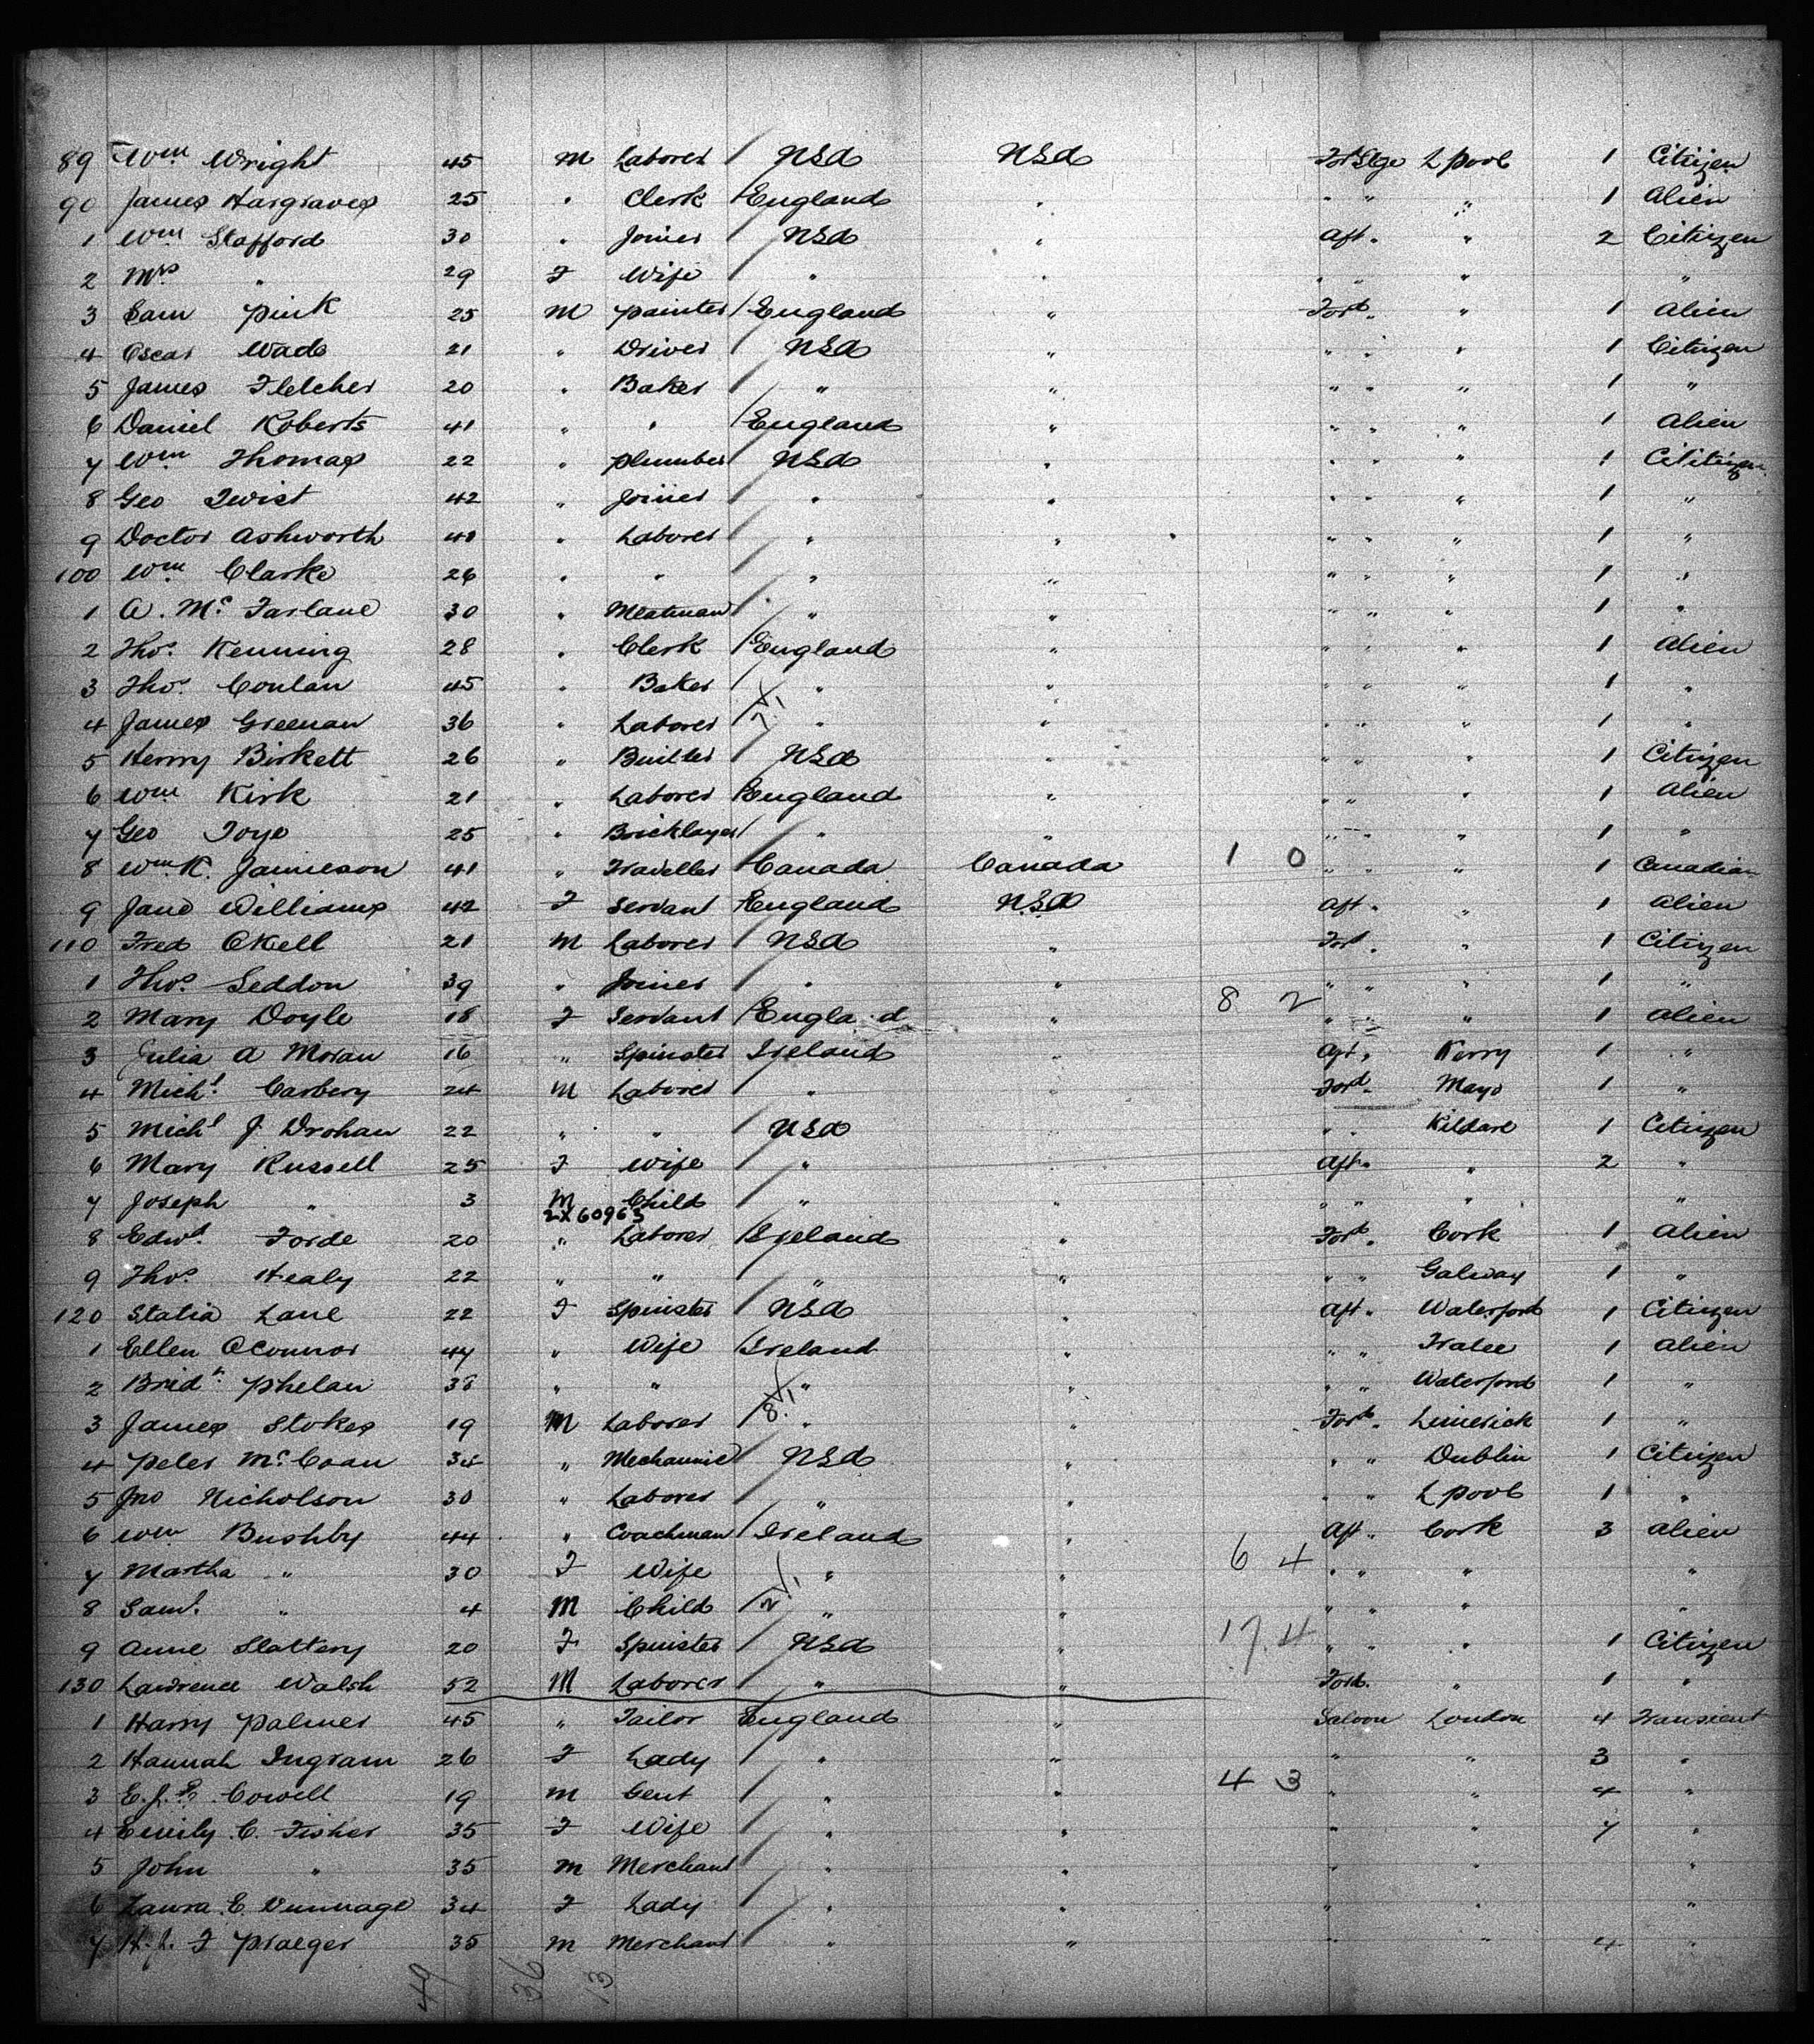 89 Wm Wright 45 M Laborer / USA USA Ford Stge L'pool 1 Citizen
90 James Hargraves 25 " Clerk / England " " " " 1 Alien
1 Wm Stafford 30 " Joiner / USA " Aft " " 2 Citizen
2 Mrs " 29 F Wife / " " " " " "
3 Sam Pink 25 M Painter / England " Ford " " 1 Alien
4 Oscar Wade 21 " Driver / USA " " " " 1 Citizen
5 James Fletcher 20 " Baker / " " " " " 1 "
6 Daniel Roberts 41 " " / England " " " " 1 Alien
7 Wm Thomas 22 " Plumber / USA " " " " 1 Citizen
8 Geo Twist 42 " Joiner / " " " " " 1 "
9 Doctor Ashworth 41 " Laborer / " " " " " 1 "
100 Wm Clarke 26 " " / " " " " " 1 "
1 A. Mc Farlane 30 " Meatman / " " " " " 1 "
2 Thos. Kenning 28 " Clerk / England " " " " 1 Alien
3 Thos. Conlan 45 " Baker / " " " " " 1 "
4 James Greenan 36 " Laborer / " " " " " 1 "
5 Henry Birkett 26 " Butler / USA " " " " 1 Citizen
6 Wm Kirk 21 " Laborer / England " " " " 1 Alien
7 Geo Foye 25 " Bricklayer / " " " " " 1 "
8 Wm. K. Jamieson 41 " Traveller / Canada Canada 1 0 " " " 1 Canadian
9 Jane Williams 42 F Servant / England USA Aft " " 1 Alien
110 Fred OKell 21 M Laborer / USA " Ford " " 1 Citizen
1 Thos. Seddon 39 " Joiner / " " " " " 1 "
2 Mary Doyle 18 F Servant / Engla d " 8 2 " " " 1 Alien
3 Julia A Moran 16 " Spinster Ireland " Aft " Kerry 1 "
4 Michl. Carbery 24 M Laborer / " " Ford " Mayo 1 "
5 Michl J. Drohan 22 " " / USA " " " Kildare 1 Citizen
6 Mary Russell 25 F Wife / " " Aft " " 2 "
7 Joseph " 3 M Child / " " " " " "
2X60963
8 Edwd. Forde 20 " Laborer / Ireland " Ford " Cork 1 Alien
9 Thos. Healy 22 " " / " " " " Galway 1 "
120 Statia Lane 22 F Spinster / USA " Aft " Waterford 1 Citizen
1 Ellen OConnor 47 " Wife / Ireland " " " Tralee 1 Alien
2 Bridt. Phelan 38 " " / " " " " Waterford 1 "
3 James Stokes 19 M Laborer / " " Ford " Limerick 1 "
4 Peter Mc. Coan 34 " Mechannic / USA " " " Dublin 1 Citizen
5 Jno Nicholson 30 " Laborer / " " " " L'pool 1 "
6 Wm Bushby 44 " Coachman / Ireland " Aft " Cork 3 Alien
7 Martha " 30 F Wife " " 6 4 " " " "
8 Saml. " 4 M Child / " " " " " "
9 Anne Slattery 20 F Spinster / USA " 17.4 " " " 1 Citizen
130 Lawrence Walsh 52 M Laborer / " " Ford. " 1 "
1 Harry Palmer 45 " Tailor England " Saloon London 4 Transient
2 Hannah Ingram 26 F Lady / " " " " 3 "
3 Cowell 19 M Gent / " " 4 3 " " 4 "
4 Emily C. Fisher 35 F Wife / " " " " 7 "
5 John " 35 M Merchant / " " " " "
6 Laura E. 34 F Lady / " " " " "
7 H. L. F Praeger 35 M Merchant / " " " " 4 "
49 36 13